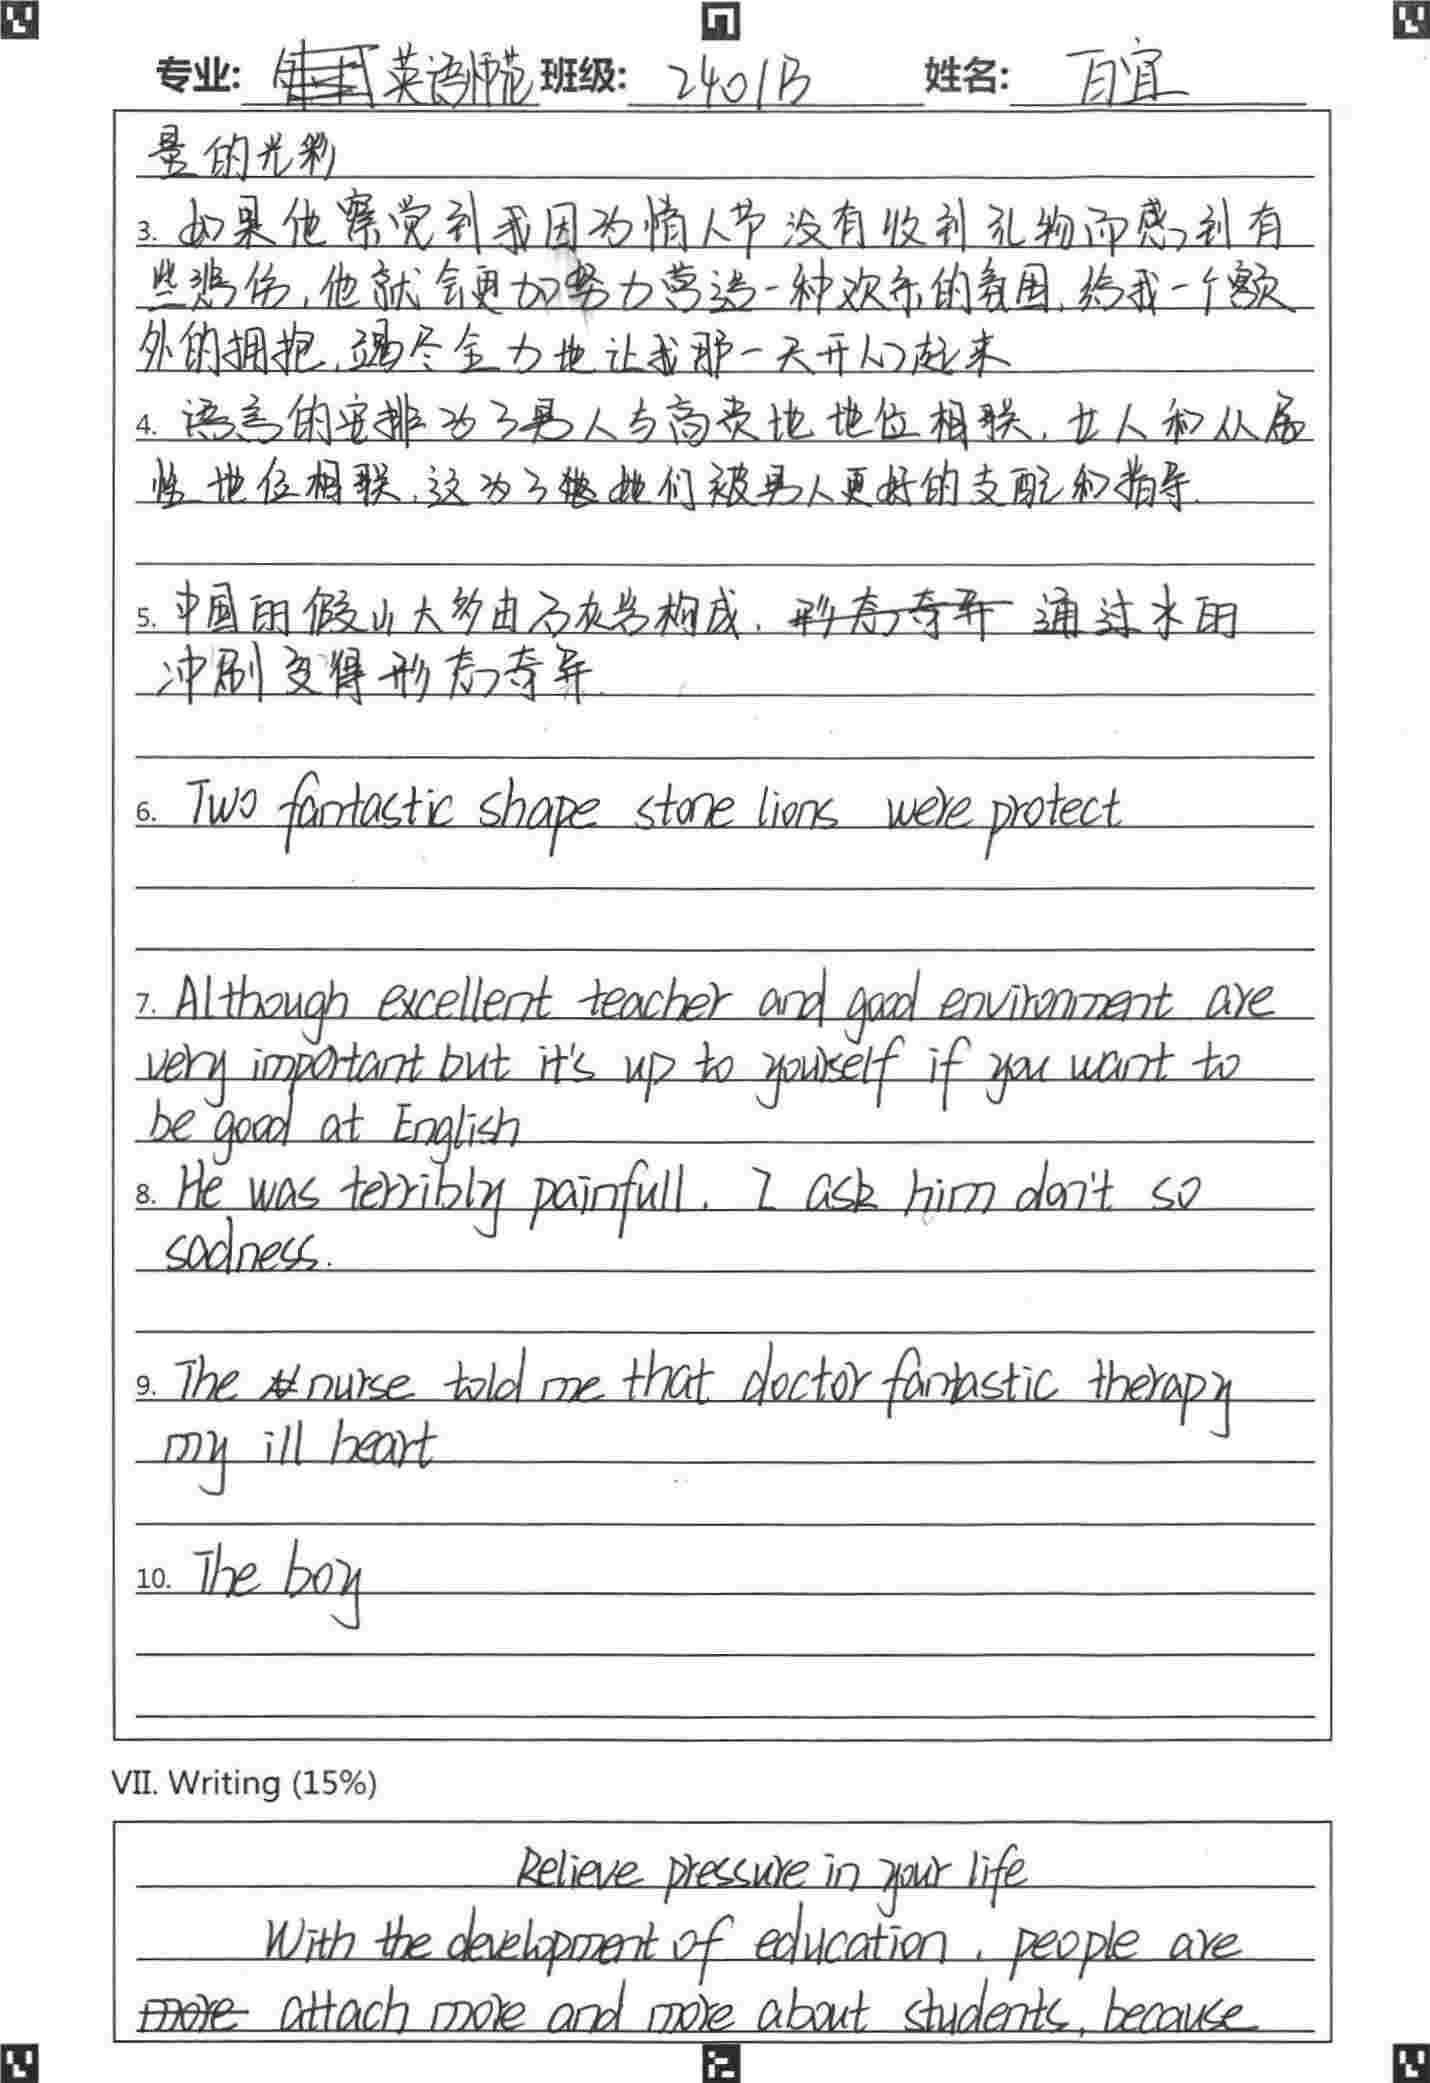 专业: 英语师范 班级: 2401B 姓名: 百宜
量的光彩
3. 如果他察觉到我因为情人节没有收到礼物而感到有
些悲伤,他就会更加努力营造一种欢乐的氛围,给我一个额
外的拥抱,竭尽全力地让我那一天开心起来
4. 语言的安排为了男人与高贵地地位相联,女人和从属
性地位相联,这为了她们被男人更好的支配和指导.
5. 中国的假山大多由石灰岩构成, 形态奇异 通过水的
冲刷变得形态奇异.
6. Two fantastic shape stone lions were protect
7. Although excellent teacher and good environment are
very important but it's up to yourself if you want to
be good at English
8. He was terribly painfull. I ask him don't so
sadness.
9. The nurse told me that doctor fantastic therapy
my ill heart
10. The boy
VII. Writing (15%)
Relieve pressure in your life
With the development of education, people are
more attach more and more about students, because